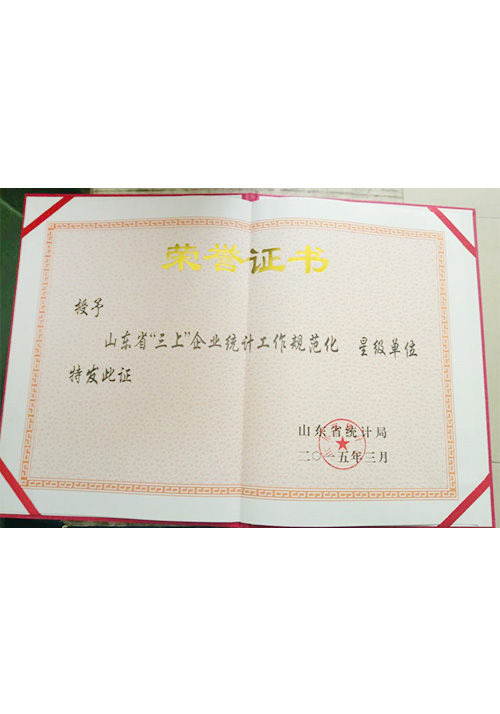 荣誉证书
授予
山东省“三上”企业统计工作规范化 星级单位
特发此证
山东省统计局
二〇一五年三月